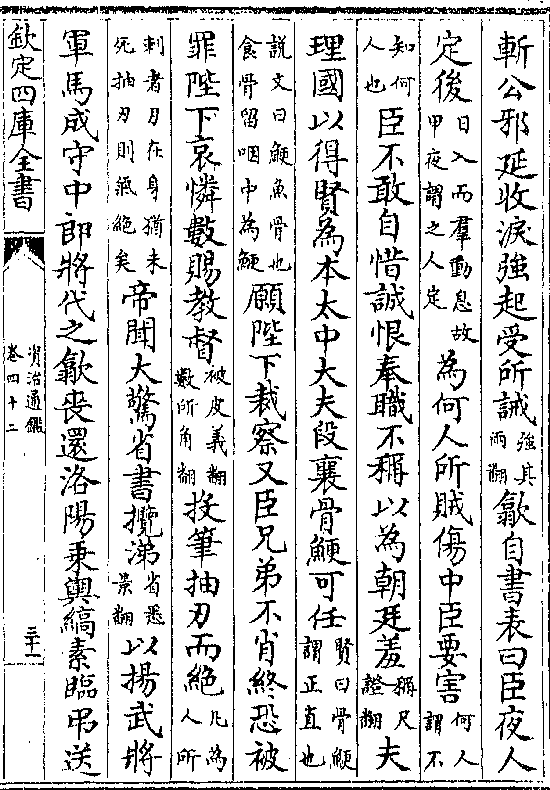 斬公邪延收淚強起受所誡強其兩翻歙自書表曰臣夜人
定後日入而羣動息故甲夜謂之人定為何人所賊傷中臣要害何人謂不
知何人也臣不敢自惜誠恨奉職不稱以為朝廷羞稱尺證翻夫
理國以得賢為本太中大夫段襄骨鯁可任賢曰骨鯁謂正直也
說文曰鯁魚骨也食骨留咽中為鯁願陛下裁察又臣兄弟不肖終恐被
罪陛下哀憐數賜教督被皮義翻數所角翻投筆抽刃而絶凡為人所
刺者刃在身猶未死抽刃則氣絶矣帝聞大驚省書攬涕省悉景翻以揚武將
軍馬成守中郎將代之歙喪還洛陽乘輿縞素臨弔送
欽定四庫全書
資治通鑑
卷四十二
三十一